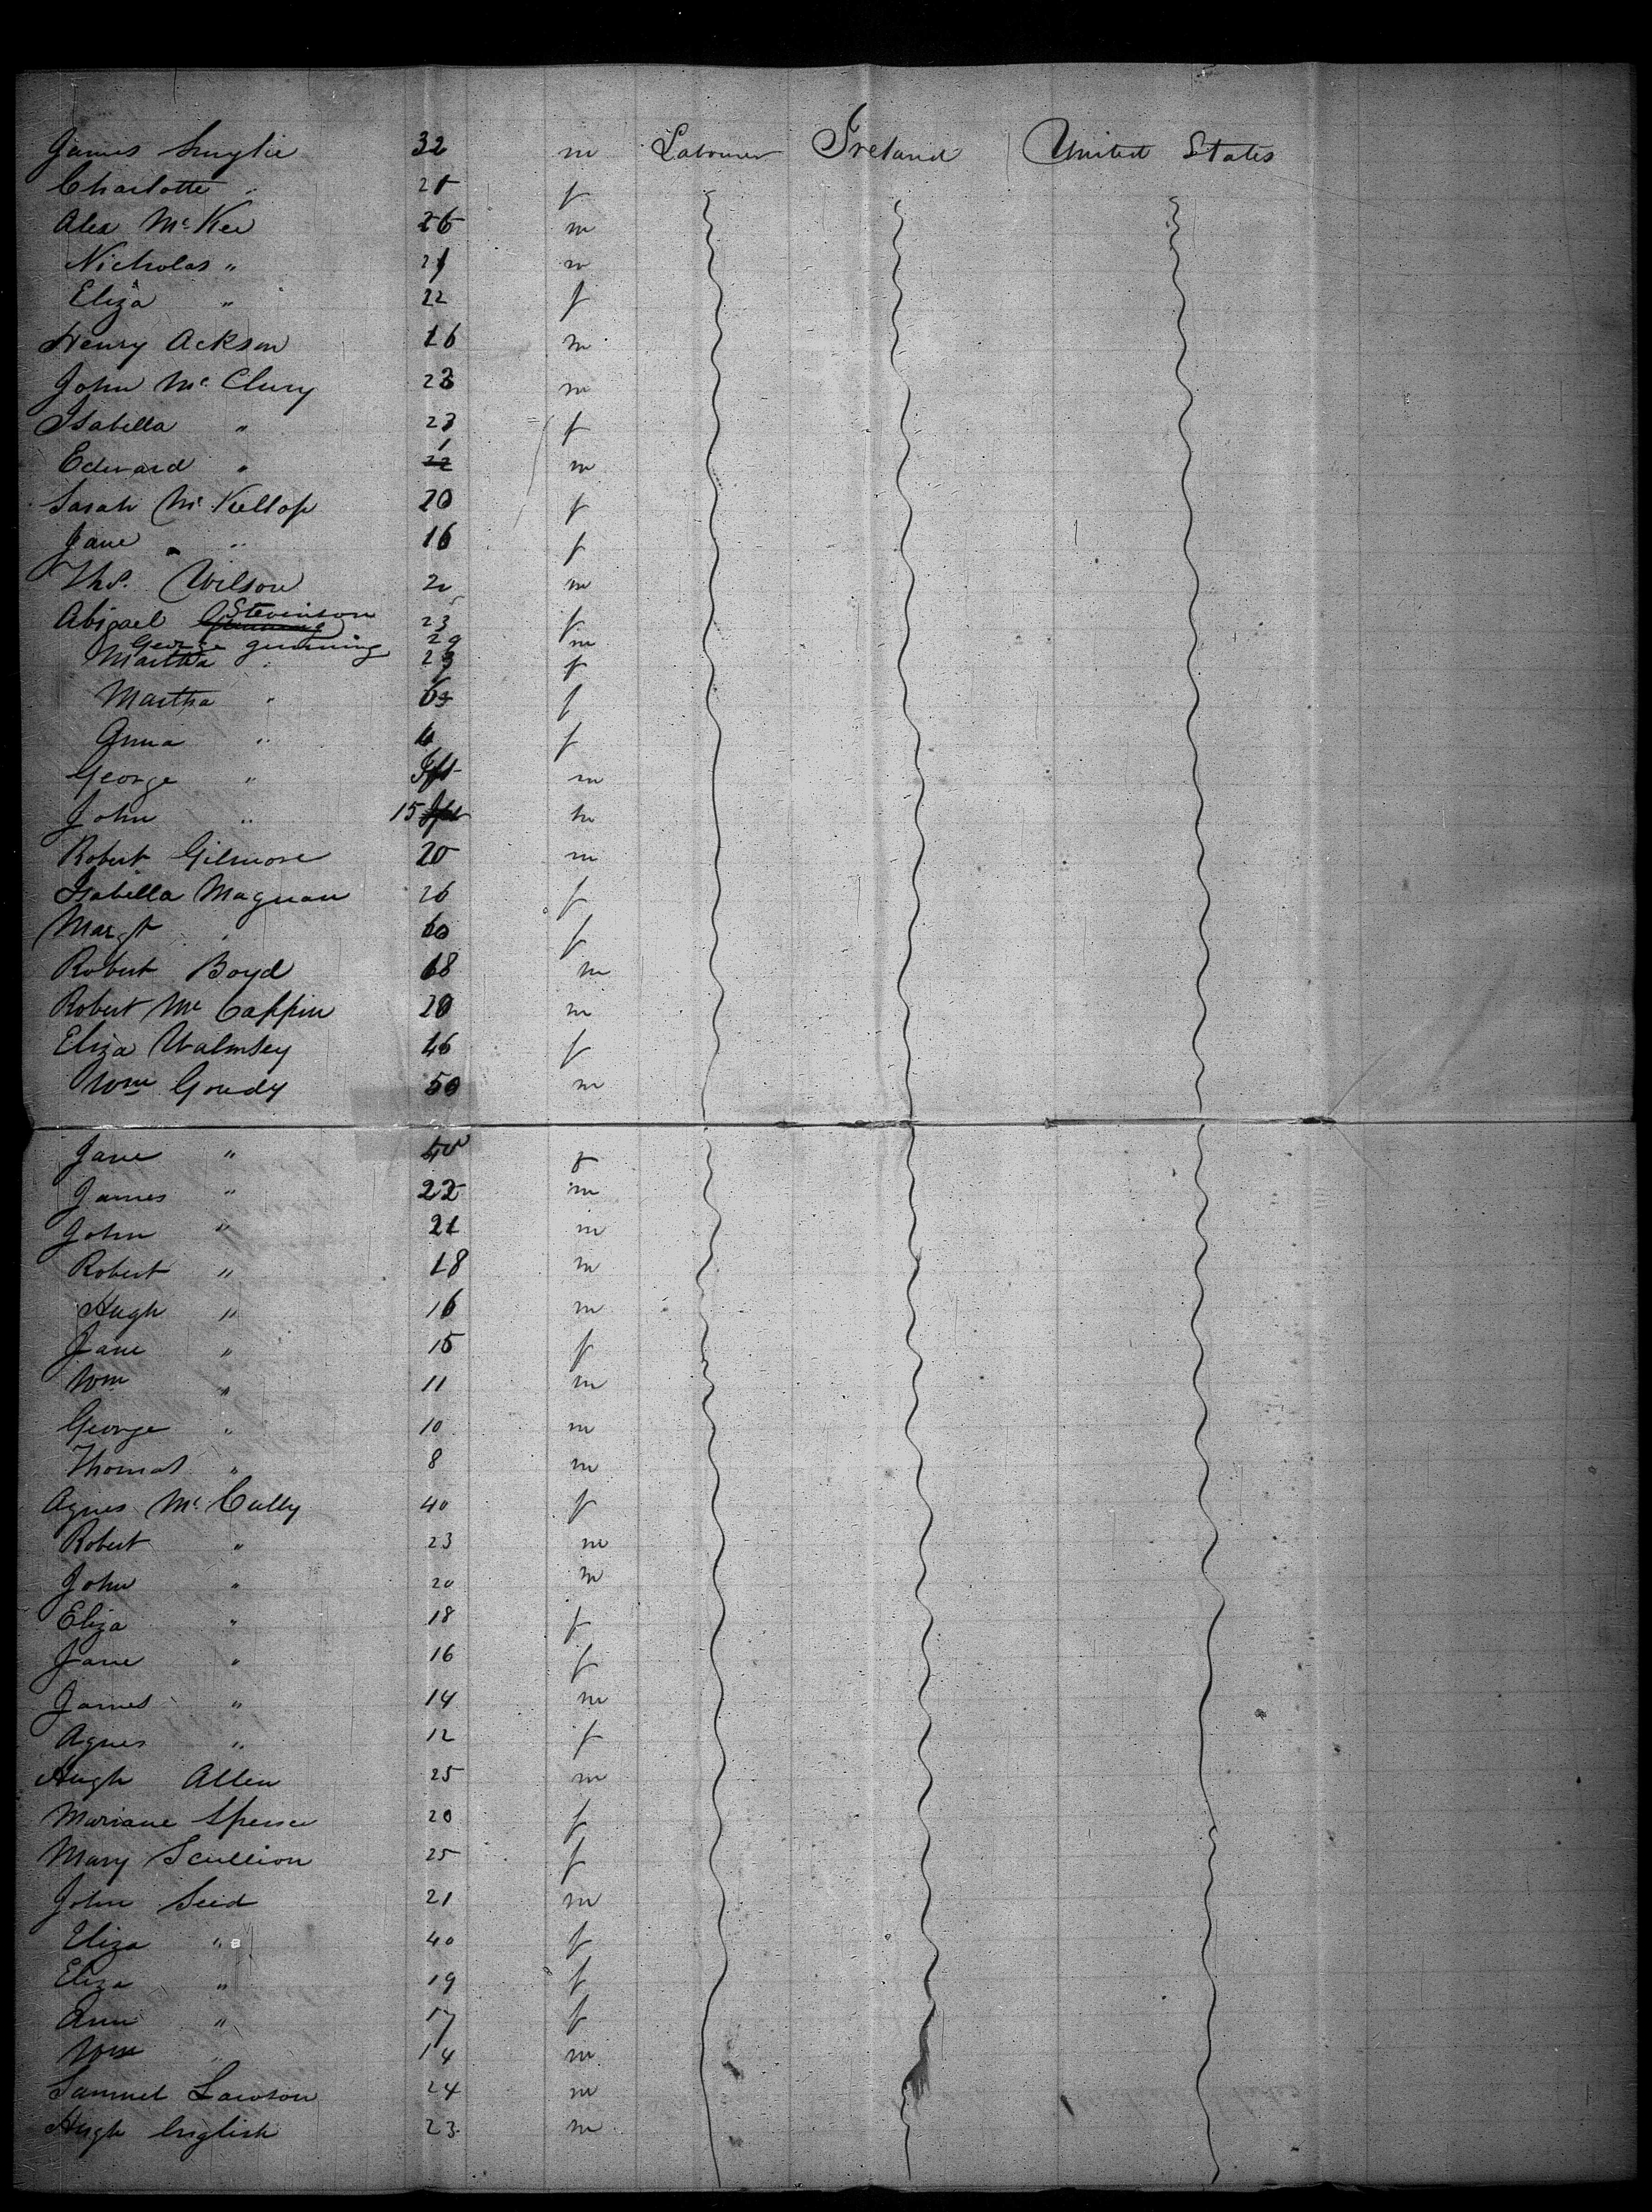 James Smylie 32 m Labourer Ireland United States
Charlotte " f
Alex McKee 26 m
Nicholas " 21 m
Eliza " 22 f
Henry Ackson 16 m
John McClury 23 m
Isabella " 23 f
Edward " 1 m
Sarah McKillop 20 f
Jane " 16 f
Thos. Wilson 20 m
Abigael Stevinson 23 f
George gunning 29 m
Martha " f
Martha " f
Anna " f
George " Ift m
John " 15 m
Robert Gilmore 20 m
Isabella Magnan 26 f
Margt " 60 f
Robert Boyd 18 m
Robert McCappin 20 m
Eliza Walmsey 46 f
Wm Goudy 50 m
Jane " 40 f
James " 22 m
John " 21 m
Robert " 18 m
Hugh " 16 m
Jane " 15 f
Wm " 11 m
George " 10 m
Thomas " 8 m
Agnes McCully 40 f
Robert " 23 m
John " 20 m
Eliza " 18 f
Jane " 16 f
James " 14 m
Agnes " 12 f
Hugh Allen 25 m
Mariane Spence 20 f
Mary Scullion 25 f
John Seed 21 m
Eliza " 40 f
Eliza " 19 f
Ann " 17 f
Wm " 14 m
Samuel Lawson 24 m
Hugh English 23 m